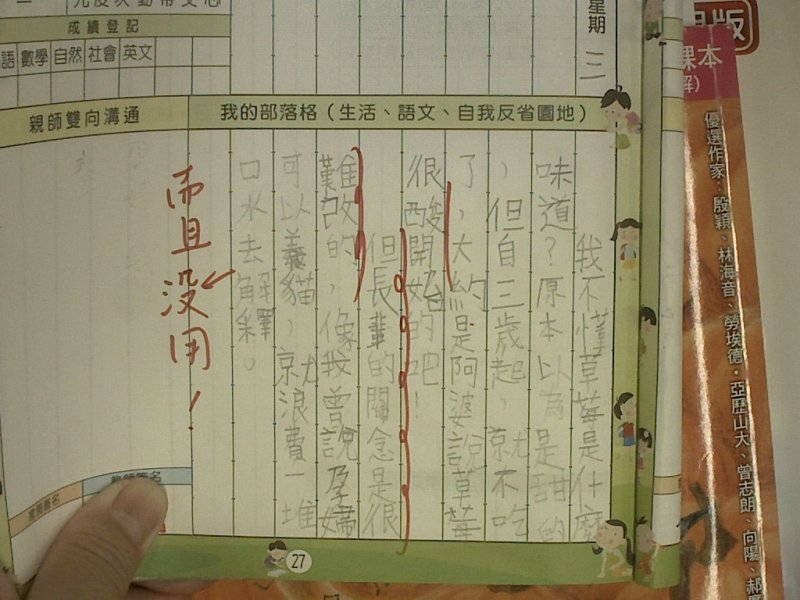 成績登記
語 數學 自然 社會 英文
星期 三
親師雙向溝通
我的部落格（生活、語文、自我反省園地）
我不懂草莓是什麼
味道？原本以為是甜的
，但自三歲起，就不吃
了，大約是阿婆說草莓
很酸開始的吧！
但長輩的關念是很
難改的，像我曾說孕婦
可以義貓，就浪費一堆
口水去解釋。
而且沒用！
家長簽名
27
版
課本
優選作家：殷穎、林海音、勞埃德・亞歷山大、曾志朗、向陽、郝